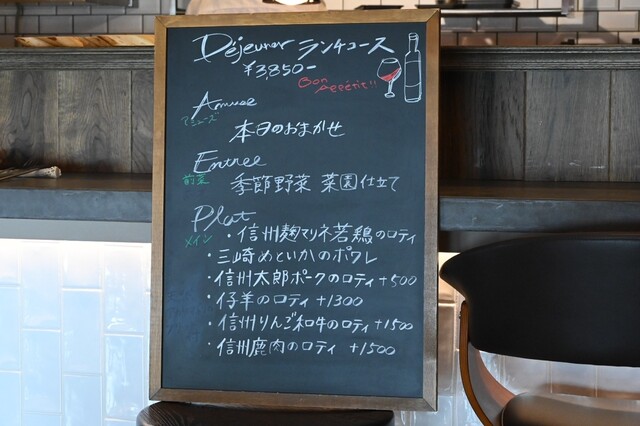 Déjeuner ランチコース
¥3,850-
Bon
Appétit!!
Amuse
アミューズ
本日のおまかせ
Entree
前菜
季節野菜 菜園仕立て
Plat
メイン
・信州麹マリネ若鶏のロティ
・三崎めといかのポワレ
・信州太郎ポークのロティ +500
・仔羊のロティ +1300
・信州りんご和牛のロティ +1500
・信州鹿肉のロティ +1500